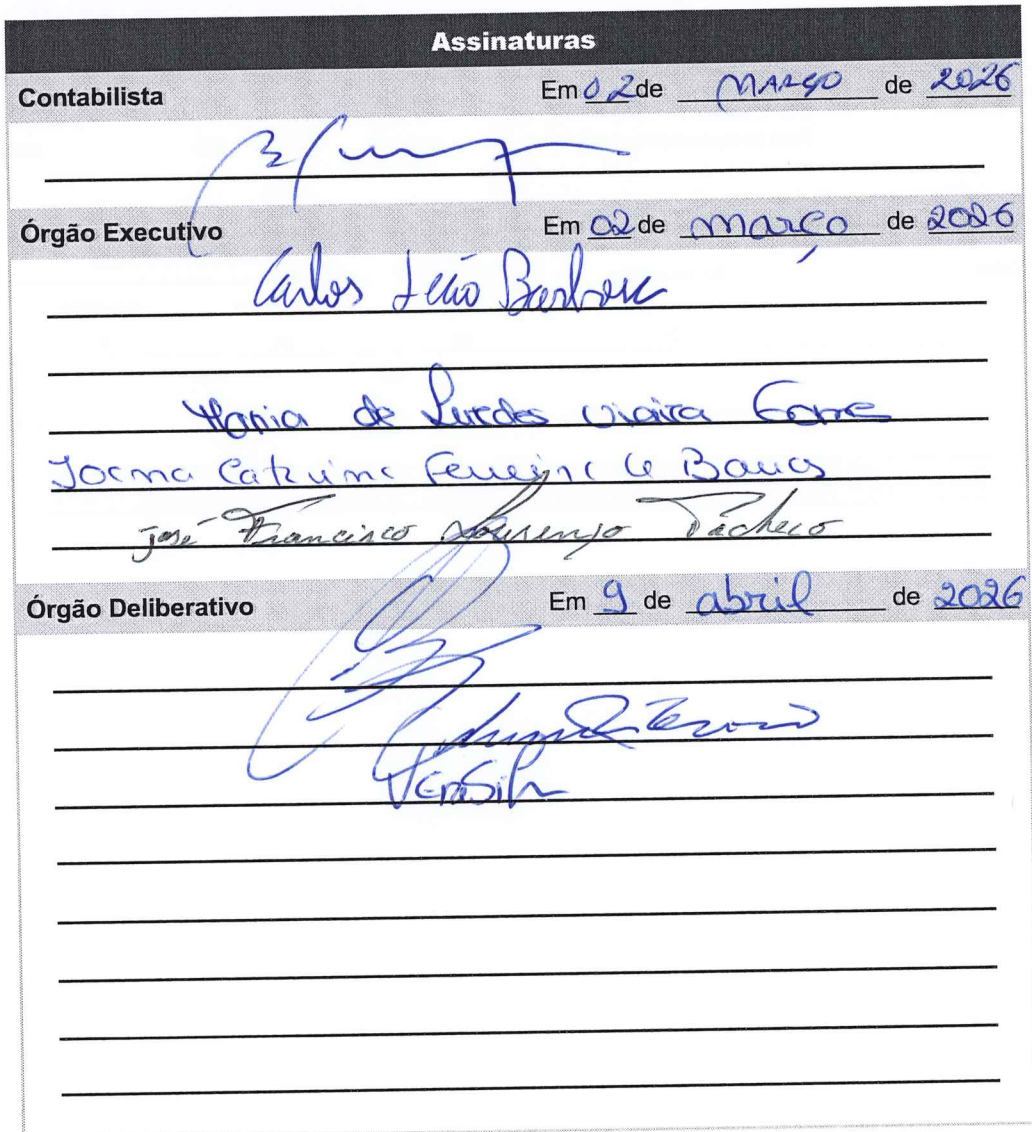 Assinaturas
Contabilista Em 02 de MARÇO de 2026
Órgão Executivo Em 02 de março de 2026
Carlos Barbosa
Maria de Lurdes Vieira Gomes
Joana Catarina Ferreira de Barros
José Francisco Lourenço Pacheco
Órgão Deliberativo Em 9 de abril de 2026